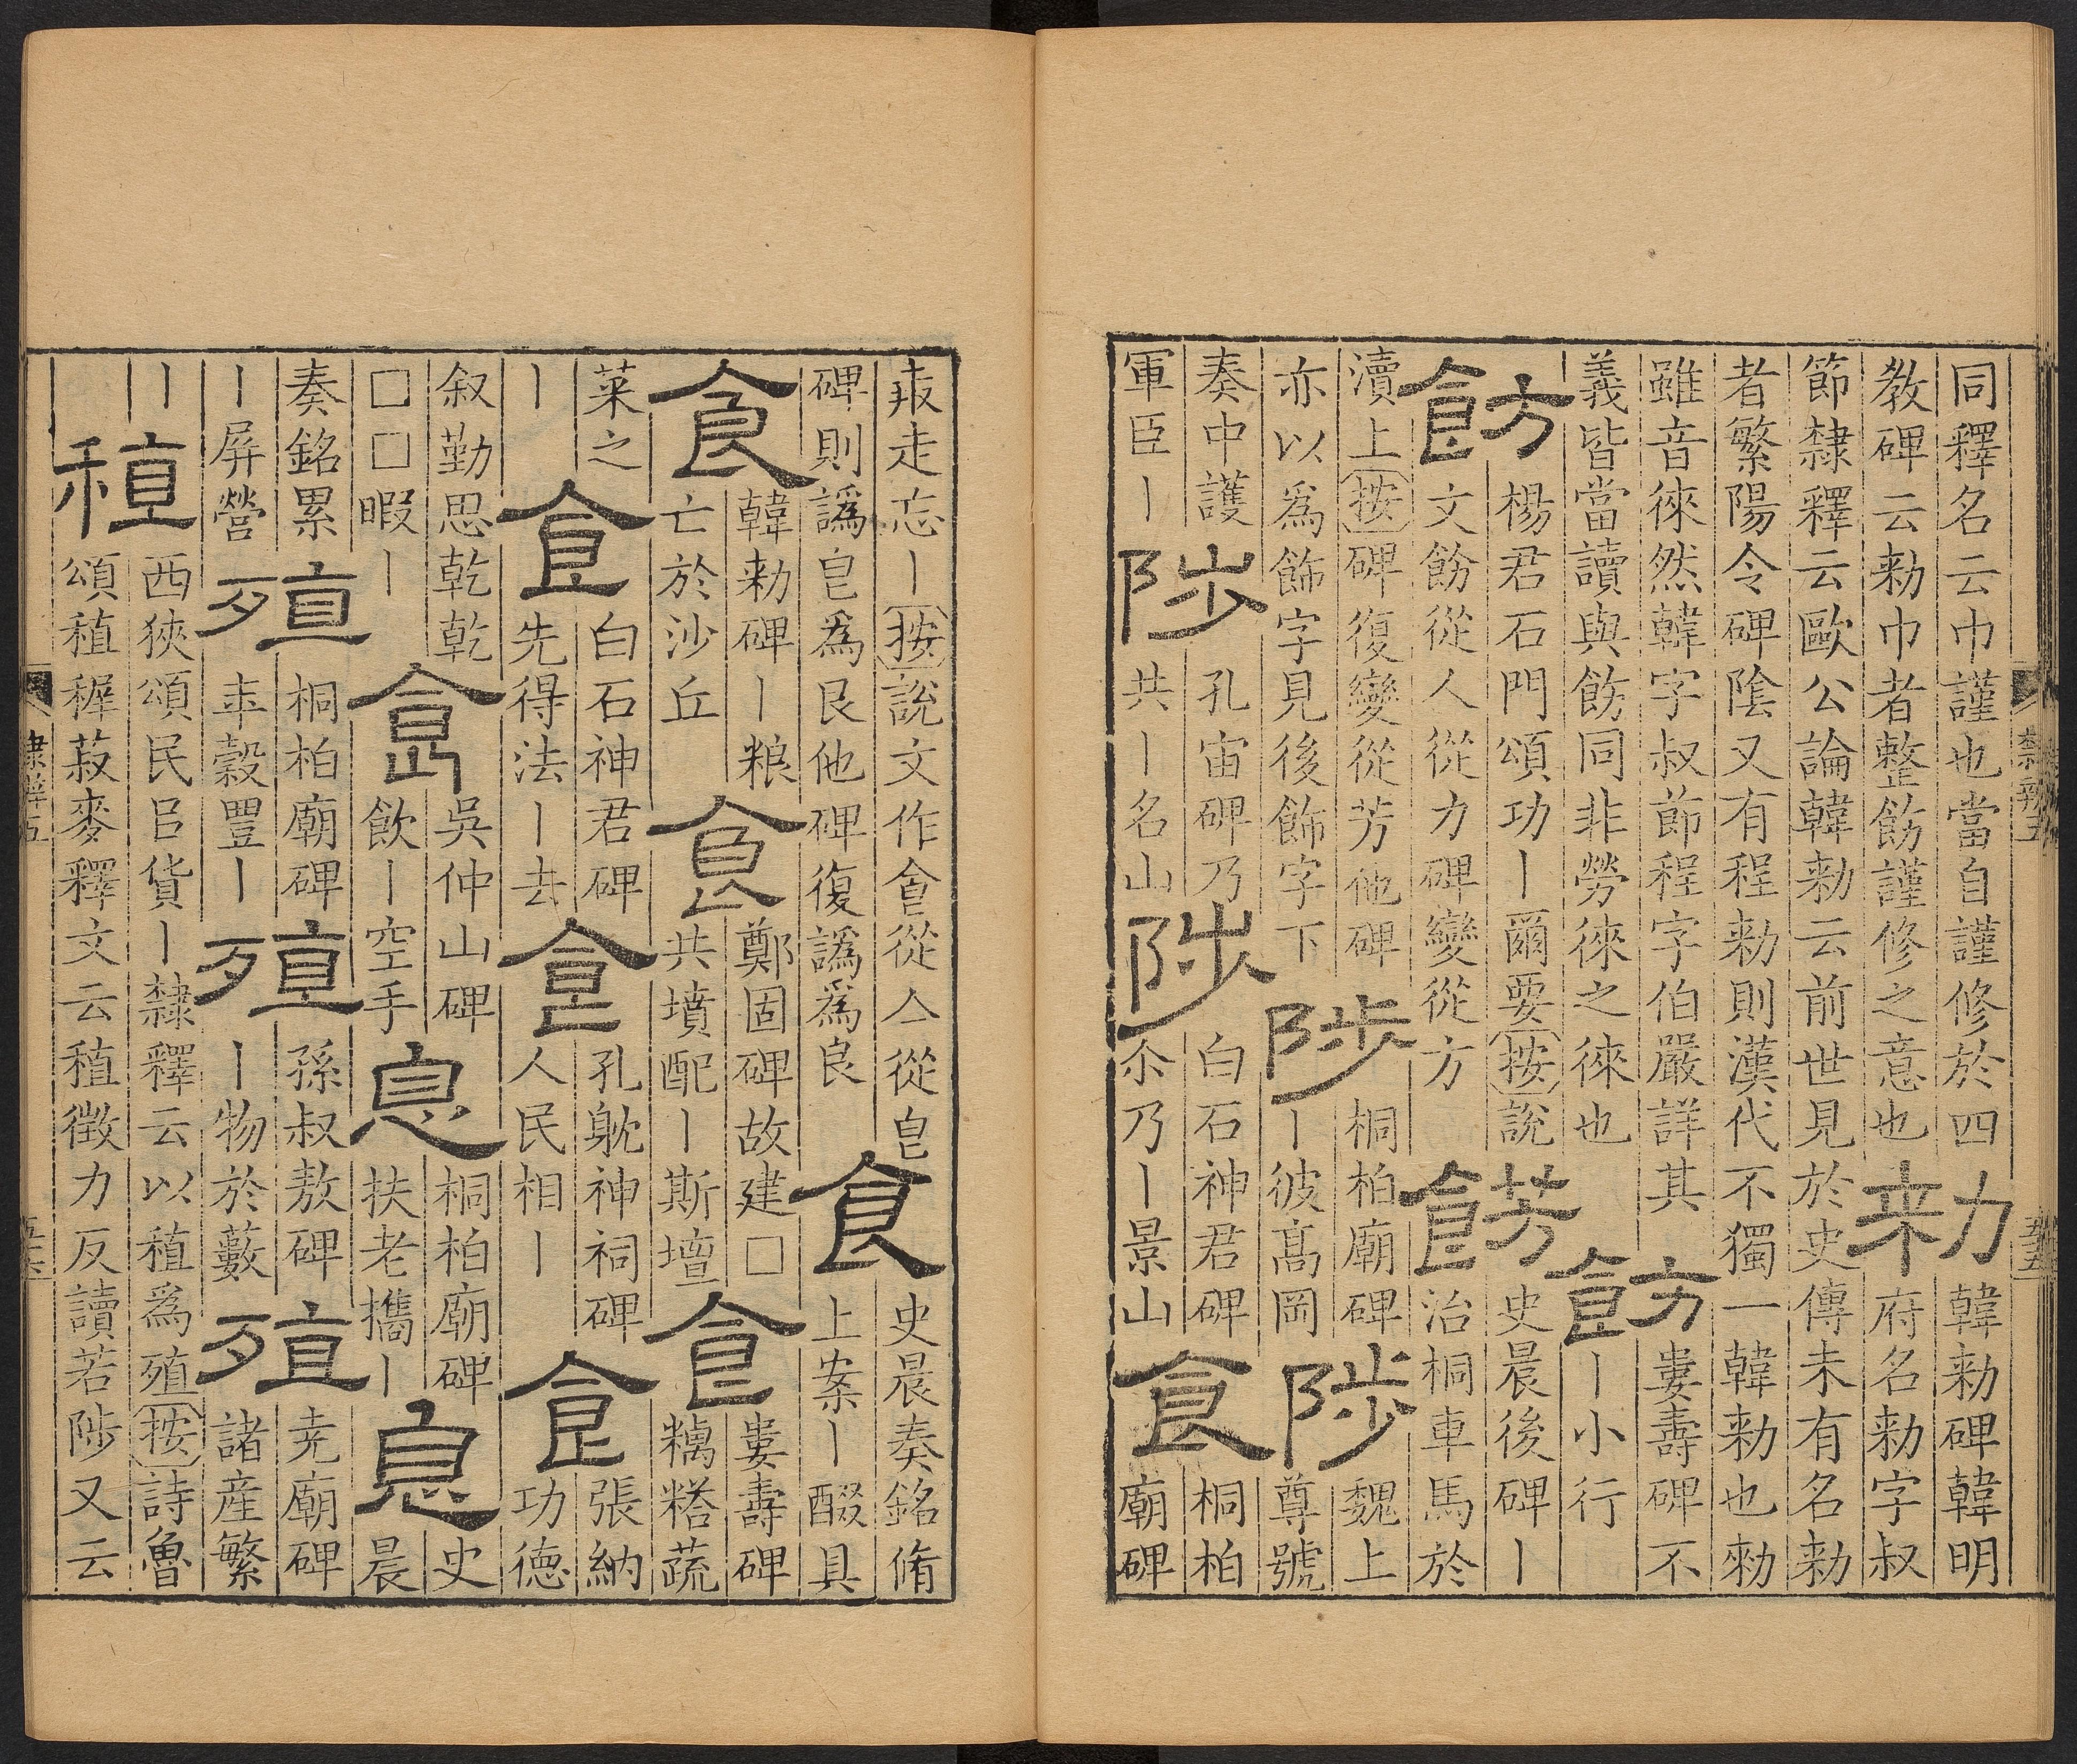 同釋名云巾謹也當自謹修於四
教碑云勑巾者整飭謹修之意也
勑
韓勑碑韓明
府名勑字叔
節隸釋云歐公論韓勑云前世見於史傳未有名勑
者繁陽令碑陰又有程勑則漢代不獨一韓勑也勑
雖音徠然韓字叔節程字伯嚴詳其
義皆當讀與飭同非勞徠之徠也
飭
婁壽碑不
丨小行
飭
楊君石門頌功丨爾要按說
文飭從人從力碑變從方
飭
史晨後碑丨
治桐車馬於
瀆上按碑復變從芳他碑
亦以為飾字見後飾字下
陟
桐柏廟碑
丨彼高岡
陟
魏上
尊號
奏中護
軍臣丨
陟
孔宙碑乃
共丨名山
陟
白石神君碑
尒乃丨景山
食
桐柏
廟碑
走忘丨按說文作食從亼從皀
碑則譌皀為艮他碑復譌為良
食
史晨奏銘脩
上案丨醊具
食
韓勑碑丨粮
亡於沙丘
食
鄭固碑故建□
共墳配丨斯壇
食
婁壽碑
糲蔬
菜之
丨
食
白石神君碑
先得法丨去
食
孔耽神祠碑
人民相丨
食
張納
功德
叙勤思乾乾
□□暇丨
食
吳仲山碑
飲丨空手
息
桐柏廟碑
扶老攜丨
息
史
晨
奏銘累
丨屏營
殖
桐柏廟碑
年穀豐丨
殖
孫叔敖碑
丨物於藪
殖
堯廟碑
諸產繁
丨
稙
西狹頌民㠯貨丨隸釋云以稙為殖按詩魯
頌稙稺菽麥釋文云稙徵力反讀若陟又云
隸辨五